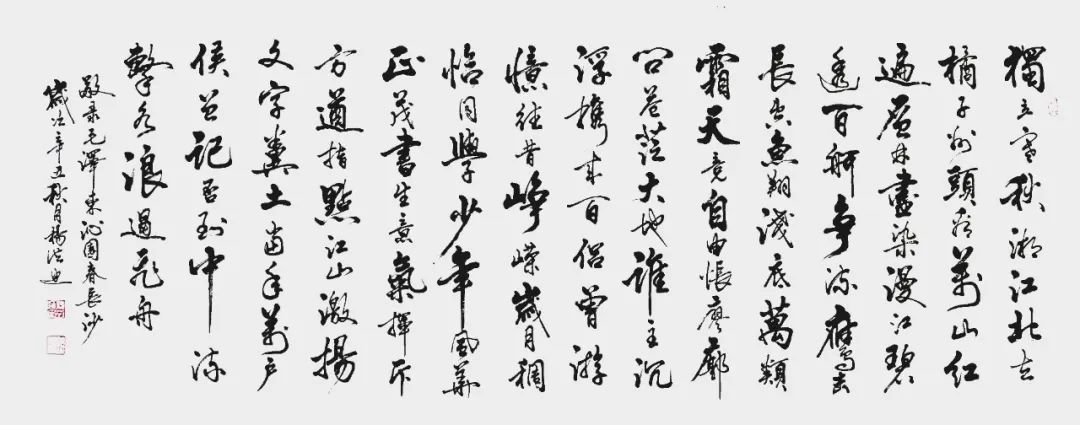 獨立寒秋湘江北去
橘子洲頭看萬山紅
遍層林盡染漫江碧
透百舸爭流鷹击
長空魚翔淺底萬類
霜天竞自由悵廖廓
問蒼茫大地誰主沉
浮攜來百侶曾游
憶往昔崢嶸歲月稠
恰同學少年風華
正茂書生意氣揮斥
方遒指點江山激揚
文字糞土當年萬戶
侯曾記否到中流
擊水浪遏飛舟
敬录毛澤東沁園春長沙
歲次辛丑秋月楊